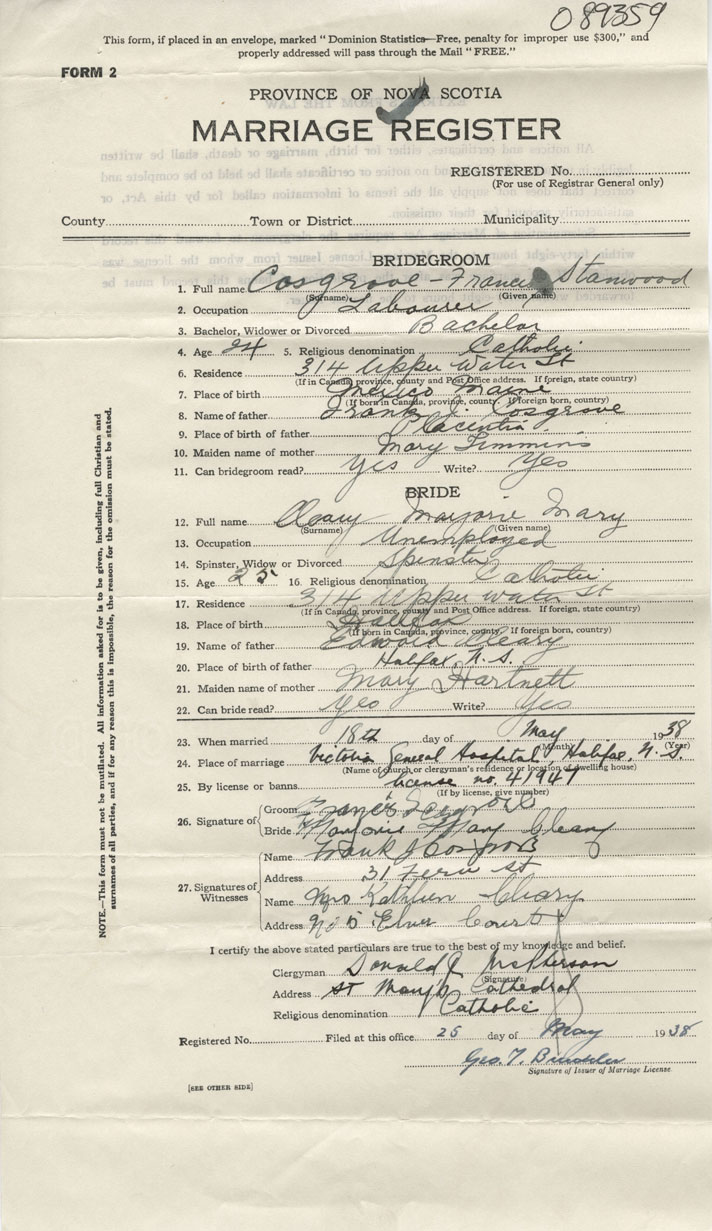 089359
This form, if placed in an envelope, marked "Dominion Statistics—Free, penalty for improper use $300," and
properly addressed will pass through the Mail "FREE."
FORM 2
PROVINCE OF NOVA SCOTIA
MARRIAGE REGISTER
REGISTERED No.
(For use of Registrar General only)
County Town or District Municipality
BRIDEGROOM
1. Full name Cosgrove - Francis Stanwood
(Surname) (Given name)
2. Occupation Labourer
3. Bachelor, Widower or Divorced Bachelor
4. Age 24 5. Religious denomination Catholic
6. Residence 314 Upper Water St
(If in Canada, province, county and Post Office address. If foreign, state country)
7. Place of birth Mexico Maine
(If born in Canada, province, county. If foreign born, country)
8. Name of father Frank J. Cosgrove
9. Place of birth of father Placentia
10. Maiden name of mother Mary Timmins
11. Can bridegroom read? Yes Write? Yes
BRIDE
12. Full name Cleary Marjorie Mary
(Surname) (Given name)
13. Occupation Unemployed
14. Spinster, Widow or Divorced Spinster
15. Age 25 16. Religious denomination Catholic
17. Residence 314 Upper Water St
(If in Canada, province, county and Post Office address. If foreign, state country)
18. Place of birth Halifax
(If born in Canada, province, county. If foreign born, country)
19. Name of father Edward Cleary
20. Place of birth of father Halifax, N.S.
21. Maiden name of mother Mary Hartnett
22. Can bride read? Yes Write? Yes
23. When married 18th day of May 1938
(Month) (Year)
24. Place of marriage Victoria General Hospital, Halifax, N.S.
(Name of church or clergyman's residence or location of dwelling house)
25. By license or banns license no. 41947
(If by license, give number)
26. Signature of Groom Francis Cosgrove
Bride Marjorie Mary Cleary
27. Signatures of Witnesses
Name Frank J Cosgrove
Address 31 Fern St
Name Mrs Kathleen Cleary
Address No 5 Elner Court
I certify the above stated particulars are true to the best of my knowledge and belief.
Clergyman Donald J McPherson
(Signature)
Address St Mary's Cathedral
Religious denomination Catholic
Registered No. Filed at this office 25 day of May 1938
Geo. T.
Signature of Issuer of Marriage License
[SEE OTHER SIDE]
NOTE.—This form must not be mutilated. All information asked for is to be given, including full Christian and
surnames of all parties, and if for any reason this is impossible, the reason for the omission must be stated.